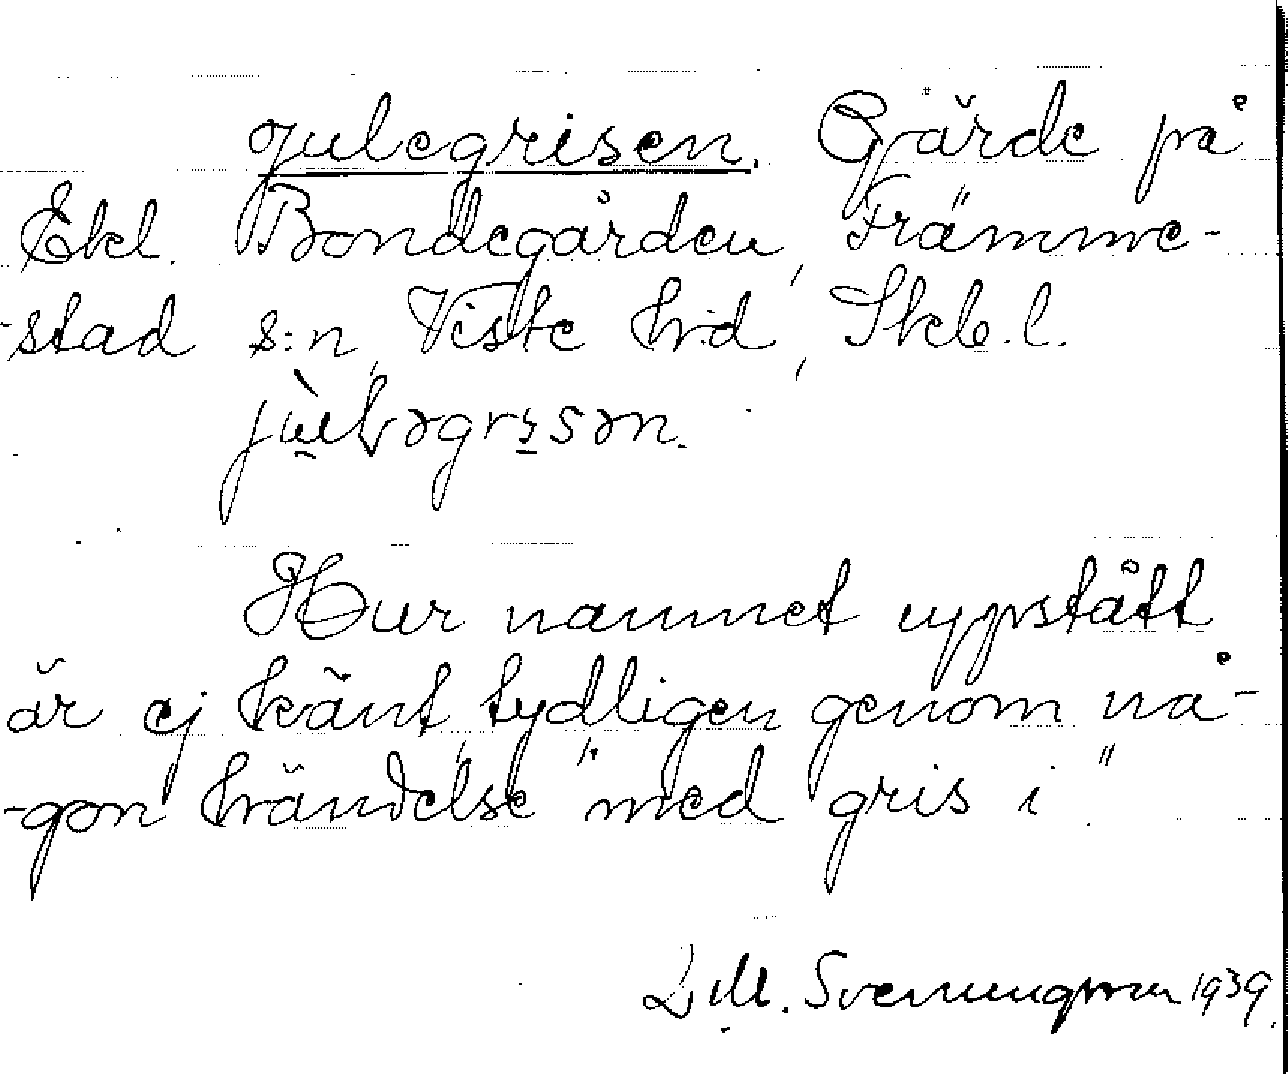 Julegrisen. Gärde på
Ekl. Bondegården, Främme-
-stad s:n, Viste hrd, Skb.l.
Hur namnet uppstått
är ej känt, tydligen genom nå-
-gon händelse "med gris i".
M. Svenungsson 1939.